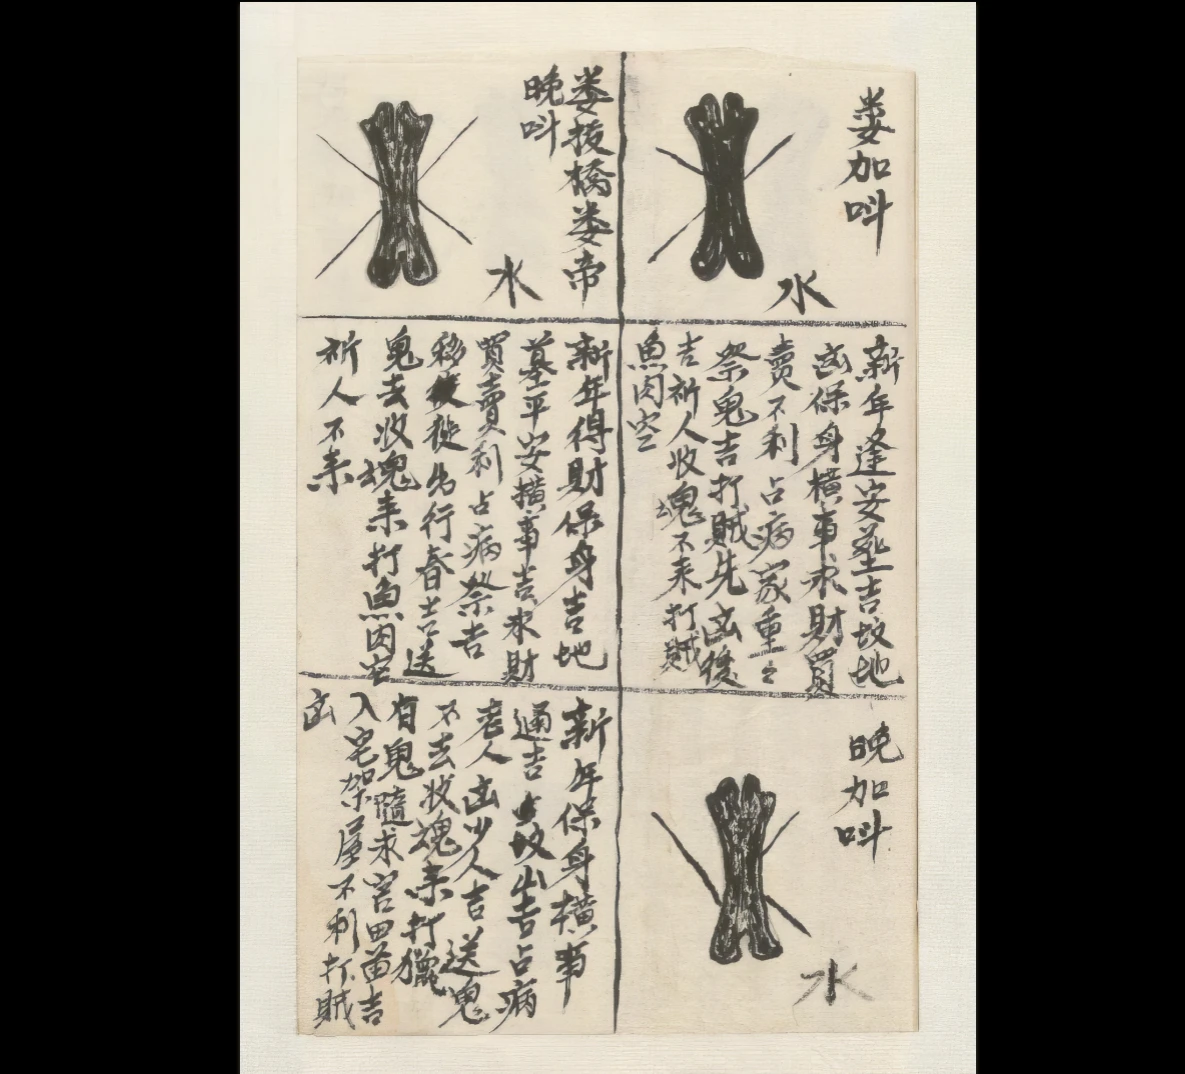 娄加呌
水
新年逢安葬吉坟地
凶保身橫事求財買
賣不利占病家重々
祭鬼吉打賊先凶後
吉祈人收魂不来打賊
魚肉空
娄抜橋娄帝
晚呌
水
新年得財保身吉地
墓平安橫事吉求財
買賣利占病祭吉
移徒徙出行春吉送
鬼去收魂来打魚肉空
祈人不来
晚加呌
水
新年保身橫事
通吉占坟出吉占病
老人凶少人吉送鬼
不去收魂来打獵
有鬼隨求官田苗吉
入宅架屋不利打賊
凶